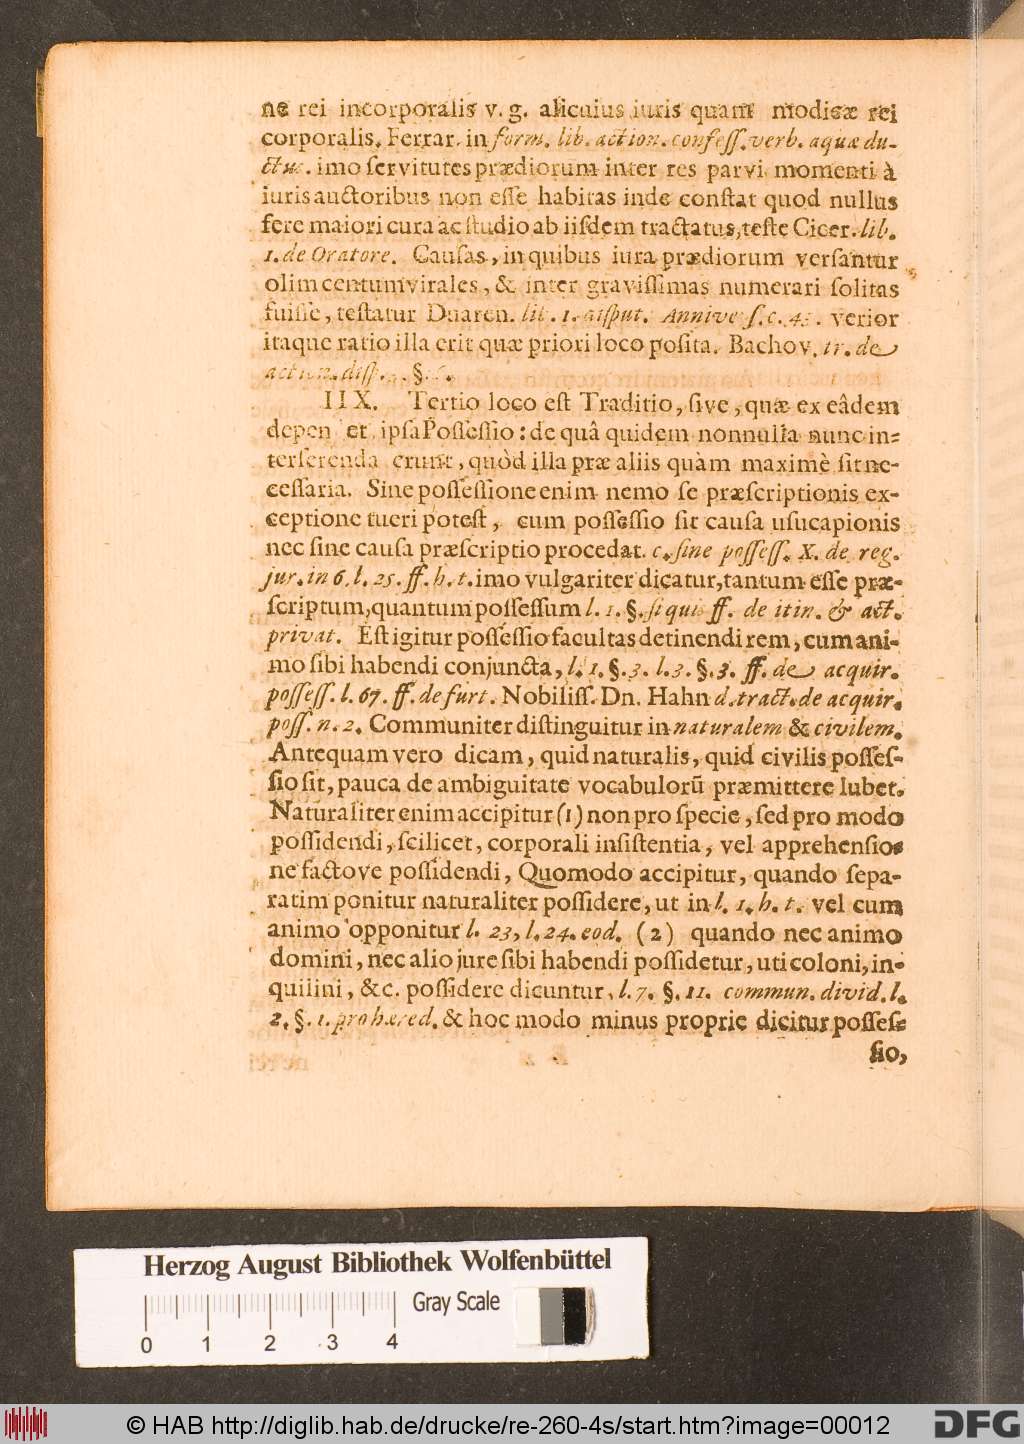 ne rei incorporalis v. g. alicuius iuris quam modicæ rei
corporalis. Ferrar. in form. lib. action. confess. verb. aquæ du-
ctus. imo servitutes prædiorum inter res parvi momenti à
iuris auctoribus non esse habitas inde constat quod nullus
fere maiori cura ac studio ab iisdem tractatus, teste Cicer. lib.
1. de Oratore. Causas, in quibus iura prædiorum versantur
olim centumvirales, & inter gravissimas numerari solitas
fuisse, testatur Duaren. lib. 1. disput. Annivers. c. verior
itaque ratio illa erit quæ priori loco posita. Bachov. tr. de
action. disp. §.
IIX. Tertio loco est Traditio, sive, quæ ex eâdem
depen et ipsa Possessio: de quâ quidem nonnulla nunc in-
terserenda erunt, quòd illa præ aliis quàm maximè sit ne-
cessaria. Sine possessione enim nemo se præscriptionis ex-
ceptione tueri potest, cum possessio sit causa usucapionis
nec sine causa præscriptio procedat. c. sine possess. X. de reg.
jur. in 6. l. 25. ff. h. t. imo vulgariter dicatur, tantum esse præ-
scriptum, quantum possessum l. 1. §. si quis ff. de itin. & act.
privat. Est igitur possessio facultas detinendi rem, cum ani-
mo sibi habendi conjuncta, l. 1. §. 3. l. 3. §. 3. ff. de acquir.
possess. l. 67. ff. de furt. Nobiliss. Dn. Hahn d. tract. de acquir.
poss. n. 2. Communiter distinguitur in naturalem & civilem.
Antequam vero dicam, quid naturalis, quid civilis posses-
sio sit, pauca de ambiguitate vocabulorū præmittere lubet.
Naturaliter enim accipitur (1) non pro specie, sed pro modo
possidendi, scilicet, corporali insistentia, vel apprehensio-
ne factove possidendi, Quomodo accipitur, quando sepa-
ratim ponitur naturaliter possidere, ut in l. 1. h. t. vel cum
animo opponitur l. 23, l. 24. eod. (2) quando nec animo
domini, nec alio jure sibi habendi possidetur, uti coloni, in-
quilini, &c. possidere dicuntur, l. 7. §. 11. commun. divid. l.
2. §. 1. pro hæred. & hoc modo minus proprie dicitur posses-
sio,
Herzog August Bibliothek Wolfenbüttel
Gray Scale
0 1 2 3 4
© HAB http://diglib.hab.de/drucke/re-260-4s/start.htm?image=00012
DFG